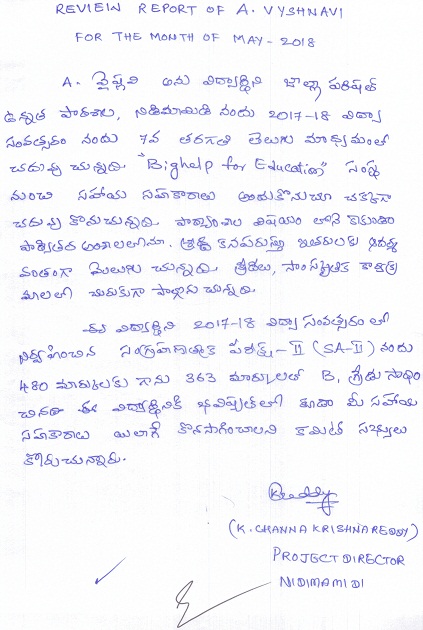 REVIEW REPORT OF A. VYSHNAVI
FOR THE MONTH OF MAY - 2018
A. వైష్ణవి అను విద్యార్థిని జిల్లా పరిషత్
ఉన్నత పాఠశాల, నిడిమామిడి నందు 2017-18 విద్యా
సంవత్సరం నందు 7వ తరగతి తెలుగు మాధ్యమంలో
చదువు చున్నది. "Bighelp for Education" సంస్థ
నుంచి సహాయ సహకారాలు అందుకొనుచూ చక్కగా
చదువు కొనుచున్నది. పాఠ్యాంశాల విషయం లోనే కాకుండా
పాఠ్యేతర అంశాలలోనూ శ్రద్ధ కనపరుస్తూ ఇతరులకు ఆదర్శ
వంతంగా మెలుగు చున్నది. క్రీడలు, సాంస్కృతిక కార్యక్ర
మాలలో చురుకుగా పాల్గొను చున్నది.
ఈ విద్యార్థిని 2017-18 విద్యా సంవత్సరం లో
నిర్వహించిన సంగ్రహణాత్మక పరీక్ష - II (SA-II) నందు
480 మార్కులకు గాను 363 మార్కులతో B, గ్రేడు సాధిం
చినది ఈ విద్యార్థినికి భవిష్యత్ లో కూడా మీ సహాయ
సహకారాలు ఇలాగే కొనసాగించాలని కమిటీ సభ్యులు
కోరుచున్నారు.
(K. CHANNA KRISHNA REDDY)
PROJECT DIRECTOR
NIDIMAMIDI